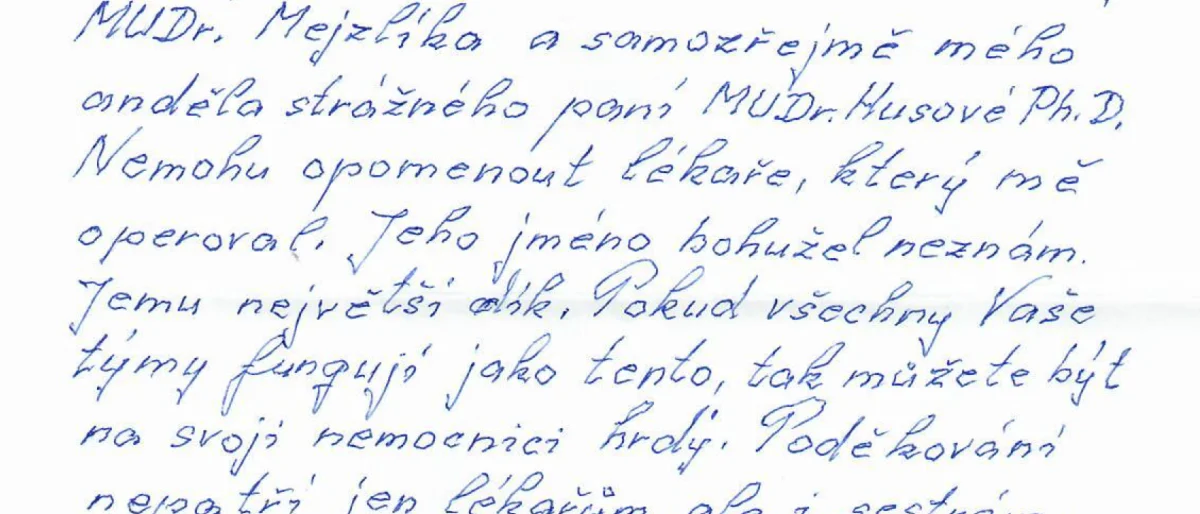 MUDr. Mejzlíka a samozřejmě mého
anděla strážného paní MUDr. Husové Ph.D.
Nemohu opomenout lékaře, který mě
operoval. Jeho jméno bohužel neznám.
Jemu největší dík. Pokud všechny Vaše
týmy fungují jako tento, tak můžete být
na svoji nemocnici hrdý. Poděkování
nepatří jen lékařům ale i sestrám